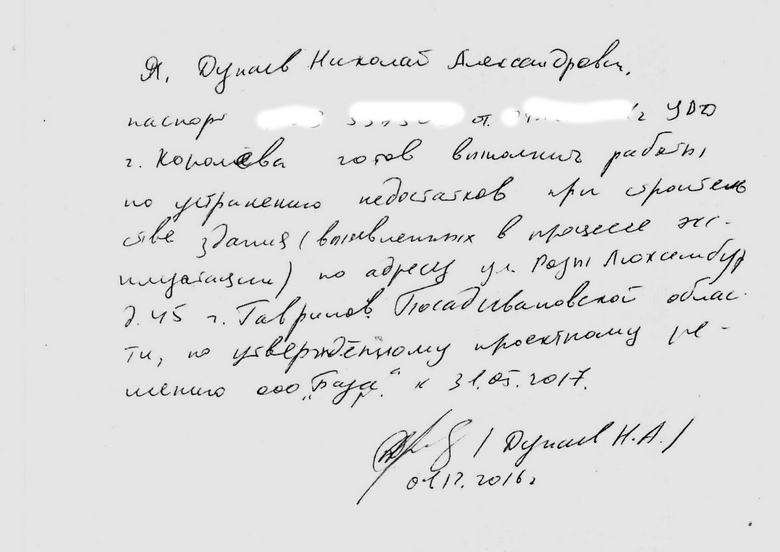 Я, Дунаев Николай Александрович,
паспорт от г УВД
г. Королёва готов выполнить работы
по устранению недостатков при строитель
стве здания (выявленных в процессе экс-
плуатации) по адресу ул. Розы Люксембург
д. 45 г. Гаврилов Посад Ивановской облас-
ти, по утверждённому проектному ре-
шению ООО к 31.05.2017.
/ Дунаев Н.А. /
01.12.2016г